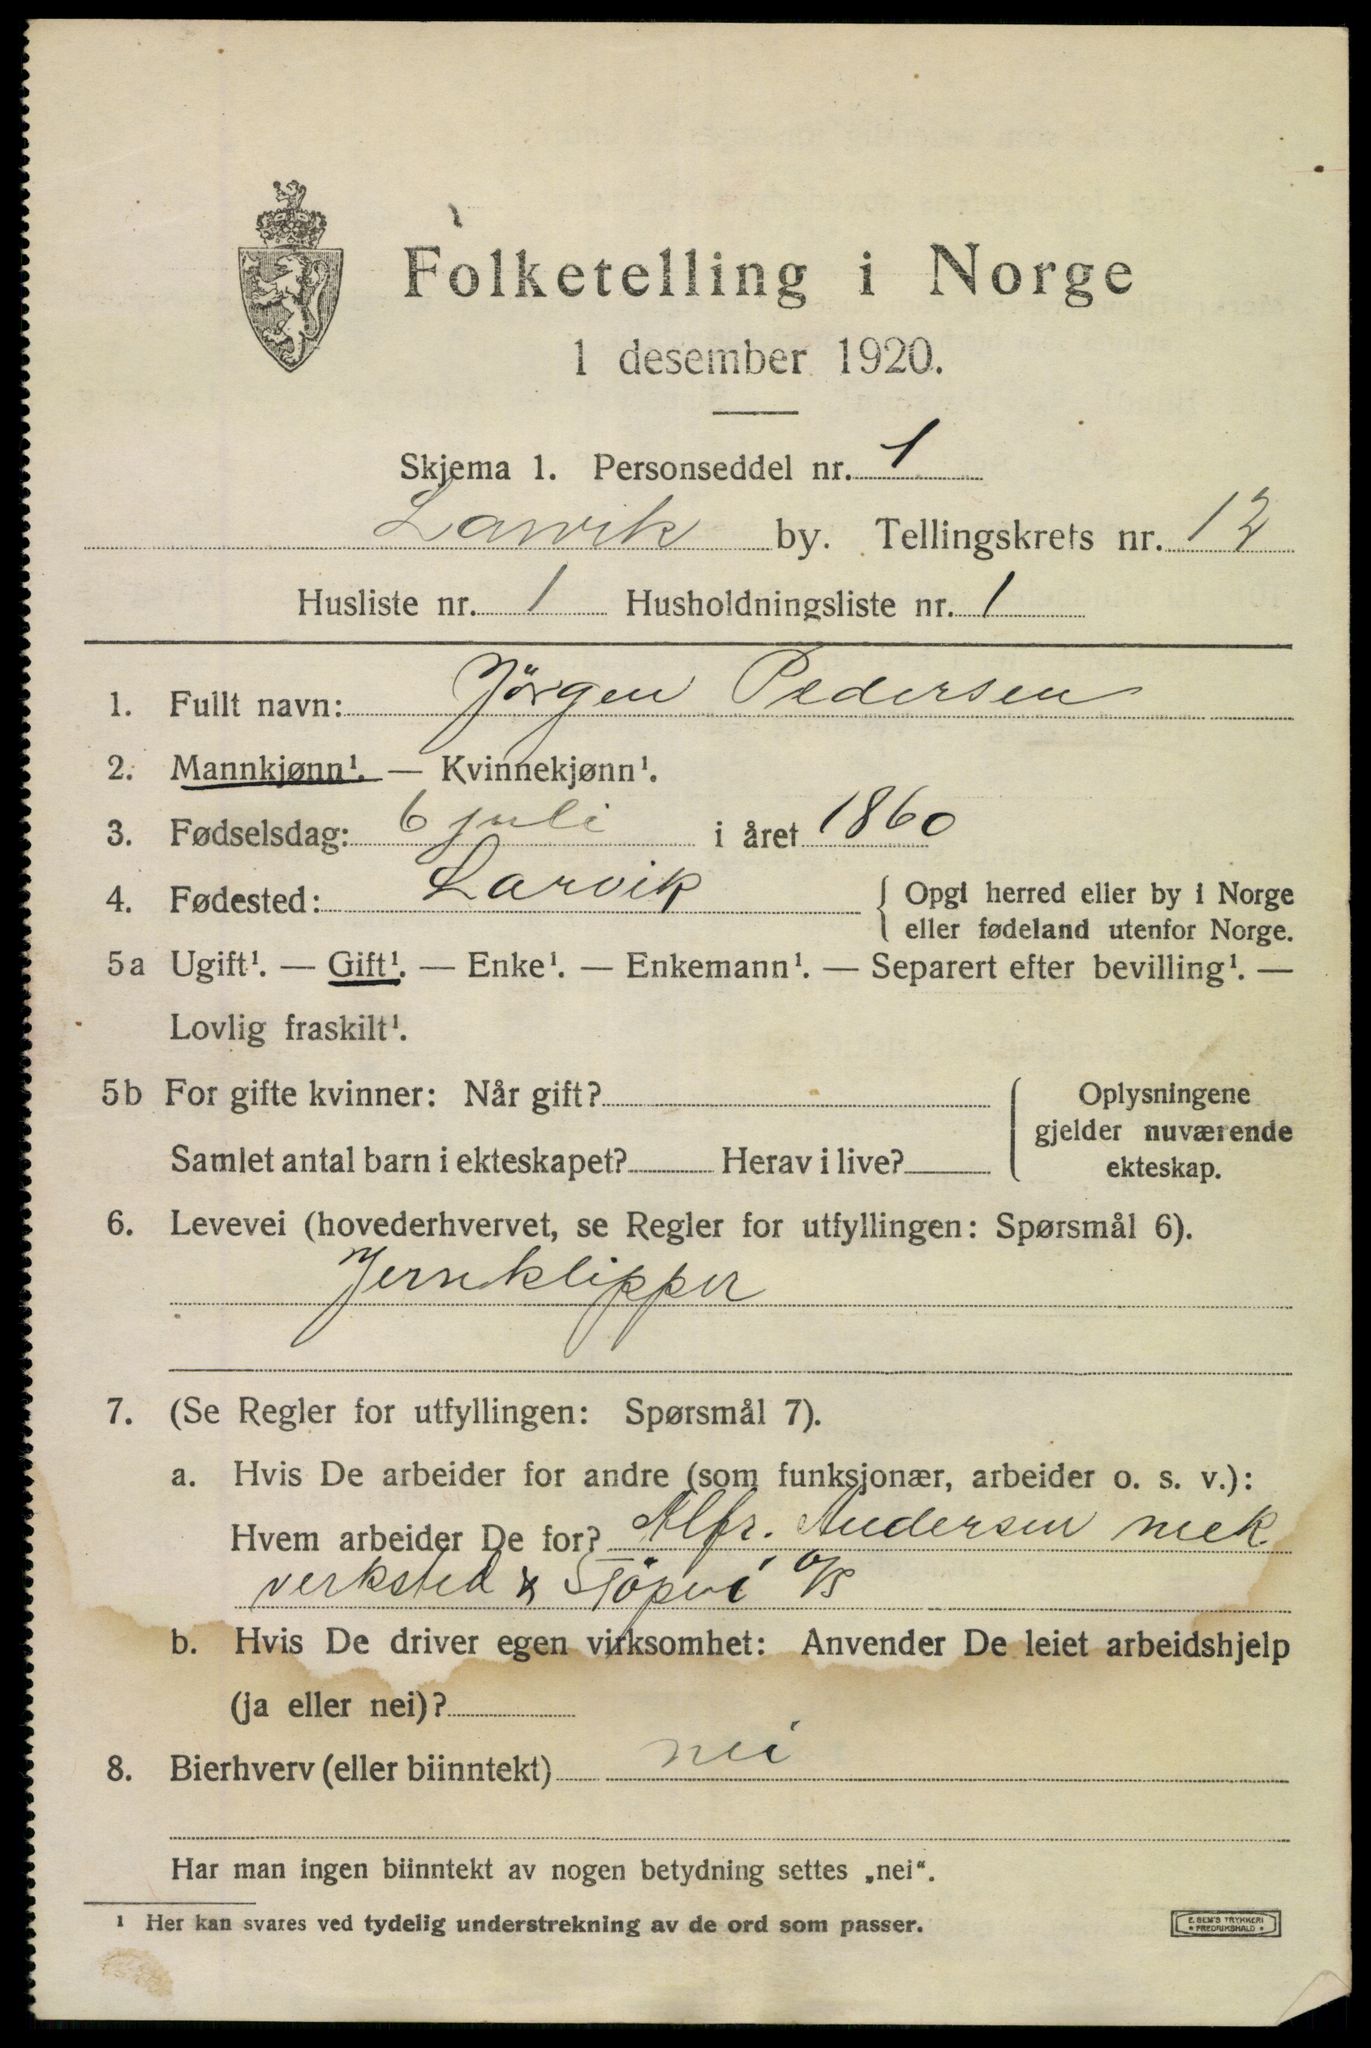 Folketelling i Norge
1 desember 1920.
Skjema 1. Personseddel nr. 1
Larvik by. Tellingskrets nr. 12
Husliste nr. 1 Husholdningsliste nr. 1
1. Fullt navn: Jörgen Pedersen
2. Mannkjønn¹. — Kvinnekjønn¹.
3. Fødselsdag: 6 juli i året 1860
4. Fødested: Larvik { Opgi herred eller by i Norge
eller fødeland utenfor Norge.
5a Ugift¹. — Gift¹. — Enke¹. — Enkemann¹. — Separert efter bevilling¹. —
Lovlig fraskilt¹.
5b For gifte kvinner: Når gift? Oplysningene
gjelder nuværende
Samlet antal barn i ekteskapet? Herav i live? ekteskap.
6. Levevei (hovederhvervet, se Regler for utfyllingen: Spørsmål 6).
Jernklipper
7. (Se Regler for utfyllingen: Spørsmål 7).
a. Hvis De arbeider for andre (som funksjonær, arbeider o. s. v.):
Hvem arbeider De for? Alfr. Andersen mek
verksted & Stöperi A/S
b. Hvis De driver egen virksomhet: Anvender De leiet arbeidshjelp
(ja eller nei)?
8. Bierhverv (eller biinntekt) nei
Har man ingen biinntekt av nogen betydning settes „nei“.
¹ Her kan svares ved tydelig understrekning av de ord som passer.
E. SEM'S TRYKKERI
* FREDRIKSHALD *